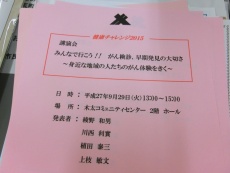 健康チャレンジ2015
講演会
みんなで行こう!! がん検診、早期発見の大切さ
～身近な地域の人たちのがん体験をきく～
日 時：平成27年9月29日(火)13:00～15:00
場 所：木太コミュニティセンター 2階 ホール
発表者：綾野 和男
川西 利質
植田 泰三
上枝 敏文